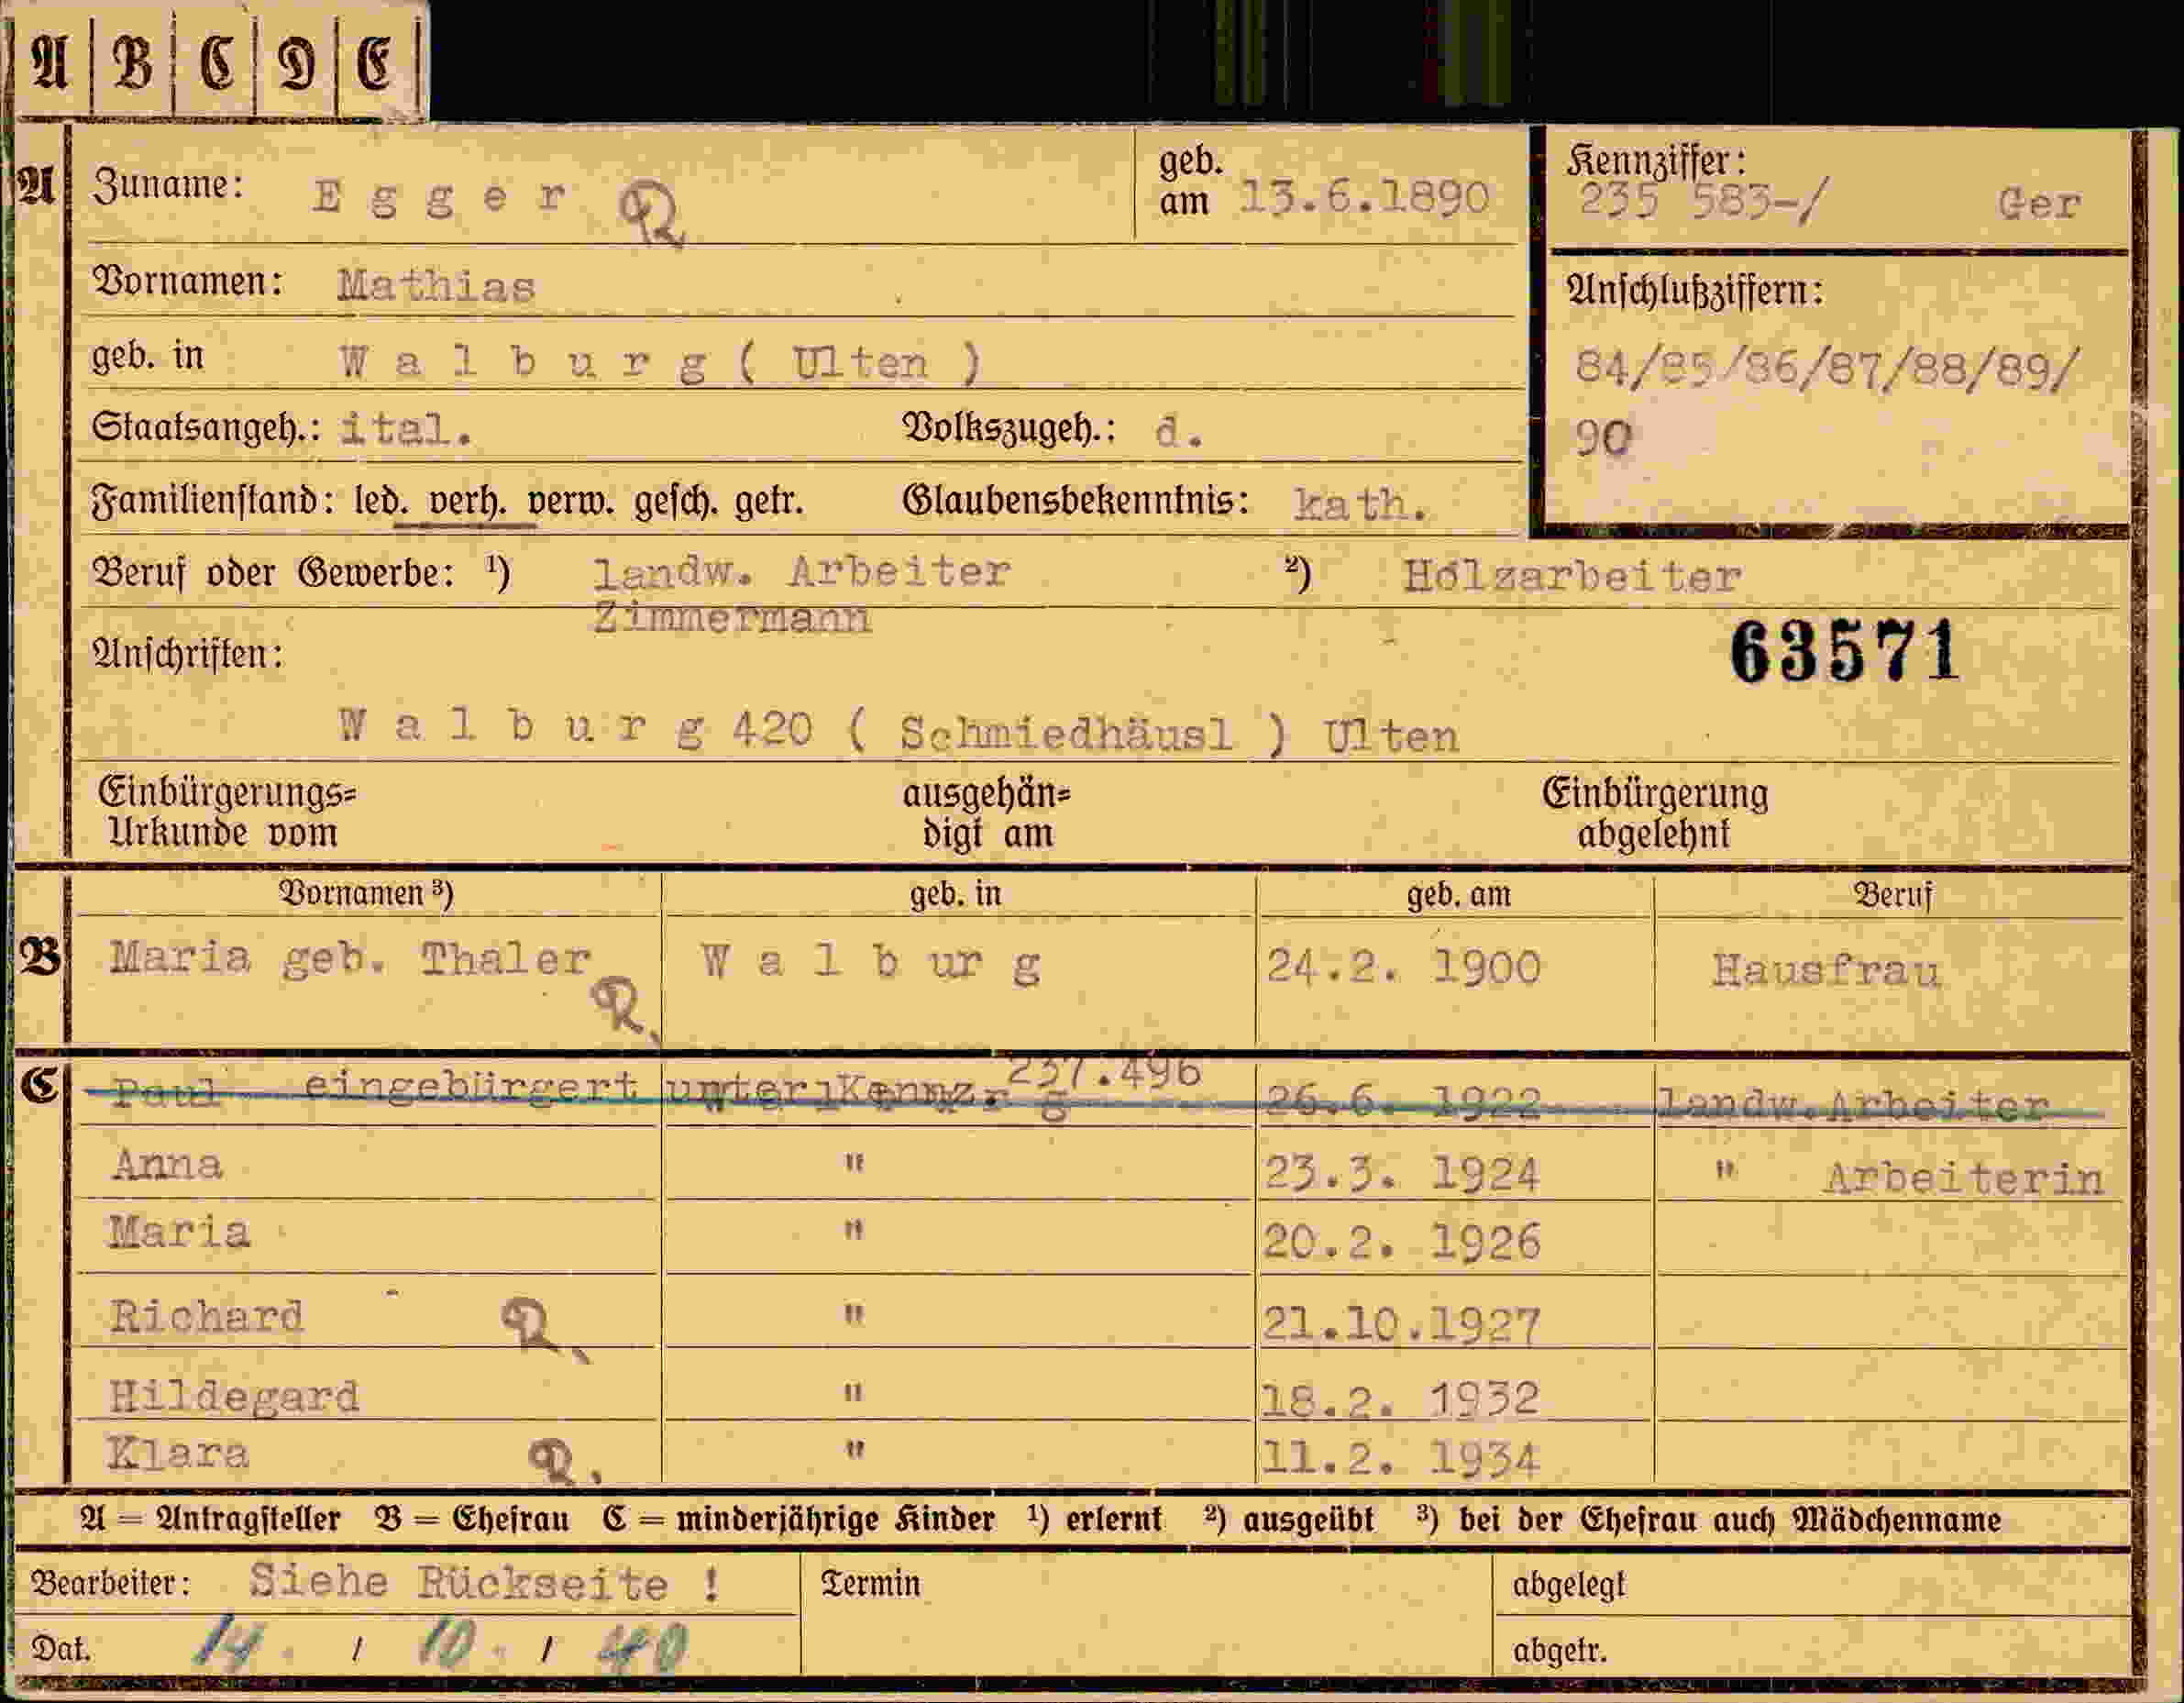 A B C D E
A Zuname: Egger R geb. am 13.6.1890 Kennziffer: 235 583-/ Ger
Vornamen: Mathias Anschlußziffern:
geb. in Walburg ( Ulten ) 84/85/86/87/88/89/
Staatsangeh.: ital. Volkszugeh.: d. 90
Familienstand: led. verh. verw. gesch. getr. Glaubensbekenntnis: kath.
Beruf oder Gewerbe: ¹) landw. Arbeiter ²) Holzarbeiter
Zimmermann
Anschriften: 63571
Walburg 420 ( Schmiedhäusl ) Ulten
Einbürgerungs= ausgehän= Einbürgerung
Urkunde vom digt am abgelehnt
Vornamen ³) geb. in geb. am Beruf
B Maria geb. Thaler R. Walburg 24.2. 1900 Hausfrau
C Paul eingebürgert unter Kennz. 237.496 26.6. 1922 landw. Arbeiter
Anna " 23.3. 1924 " Arbeiterin
Maria " 20.2. 1926
Richard R. " 21.10.1927
Hildegard " 18.2. 1932
Klara R. " 11.2. 1934
A = Antragsteller B = Ehefrau C = minderjährige Kinder ¹) erlernt ²) ausgeübt ³) bei der Ehefrau auch Mädchenname
Bearbeiter: Siehe Rückseite ! Termin abgelegt
Dat. 14. / 10. / 40 abgetr.